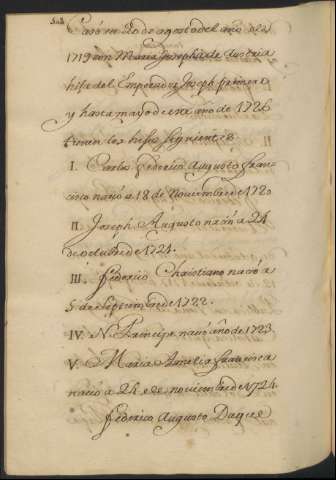 Casó en 20 de agosto del año de
1719 con Maria Josepha de Austria
hija del Emperador Joseph primero
y hasta mayo de este año de 1726
tienen los hijos siguientes
I. Carlos Federico Augusto Fran
cisco nació a 18 de Noviembre de 1720
II. Joseph Augusto nació a 24
de octubre de 1721.
III. Federico Christiano nació a
5 de septiembre de 1722.
IV. N. Principe nació año de 1723
V. Maria Amelia Francisca
nació a 24 de noviembre de 1724.
Federico Augusto Duque